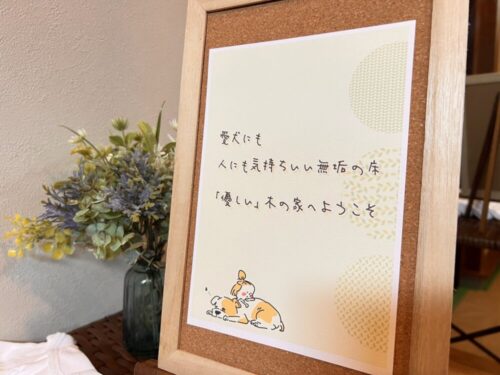 愛犬にも
人にも気持ちいい無垢の床
「優しい」木の家へようこそ